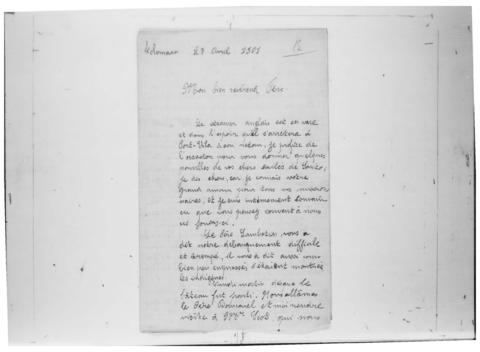 le 8 Avril 1901
Mon bien révérend Père
Le vapeur anglais est en vue
et dans l'espoir qu'il s'arrêtera à
Port-Vila à son retour, je profite de
l'occasion pour vous donner quelques
nouvelles de vos chers exilés de
je dis chers, car je connais votre
grand amour pour tous vos mission
naires, et je suis intimement convain
cu que vous pensez souvent à nous
ces jours-ci.
Le Père vous a
dit notre débarquement difficile
et il vous a dit aussi com
bien peu empressés s'étaient montrés
les indigènes.
matin le
bateau fut parti. Nous allâmes
le Père et moi rendre
visite à qui nous